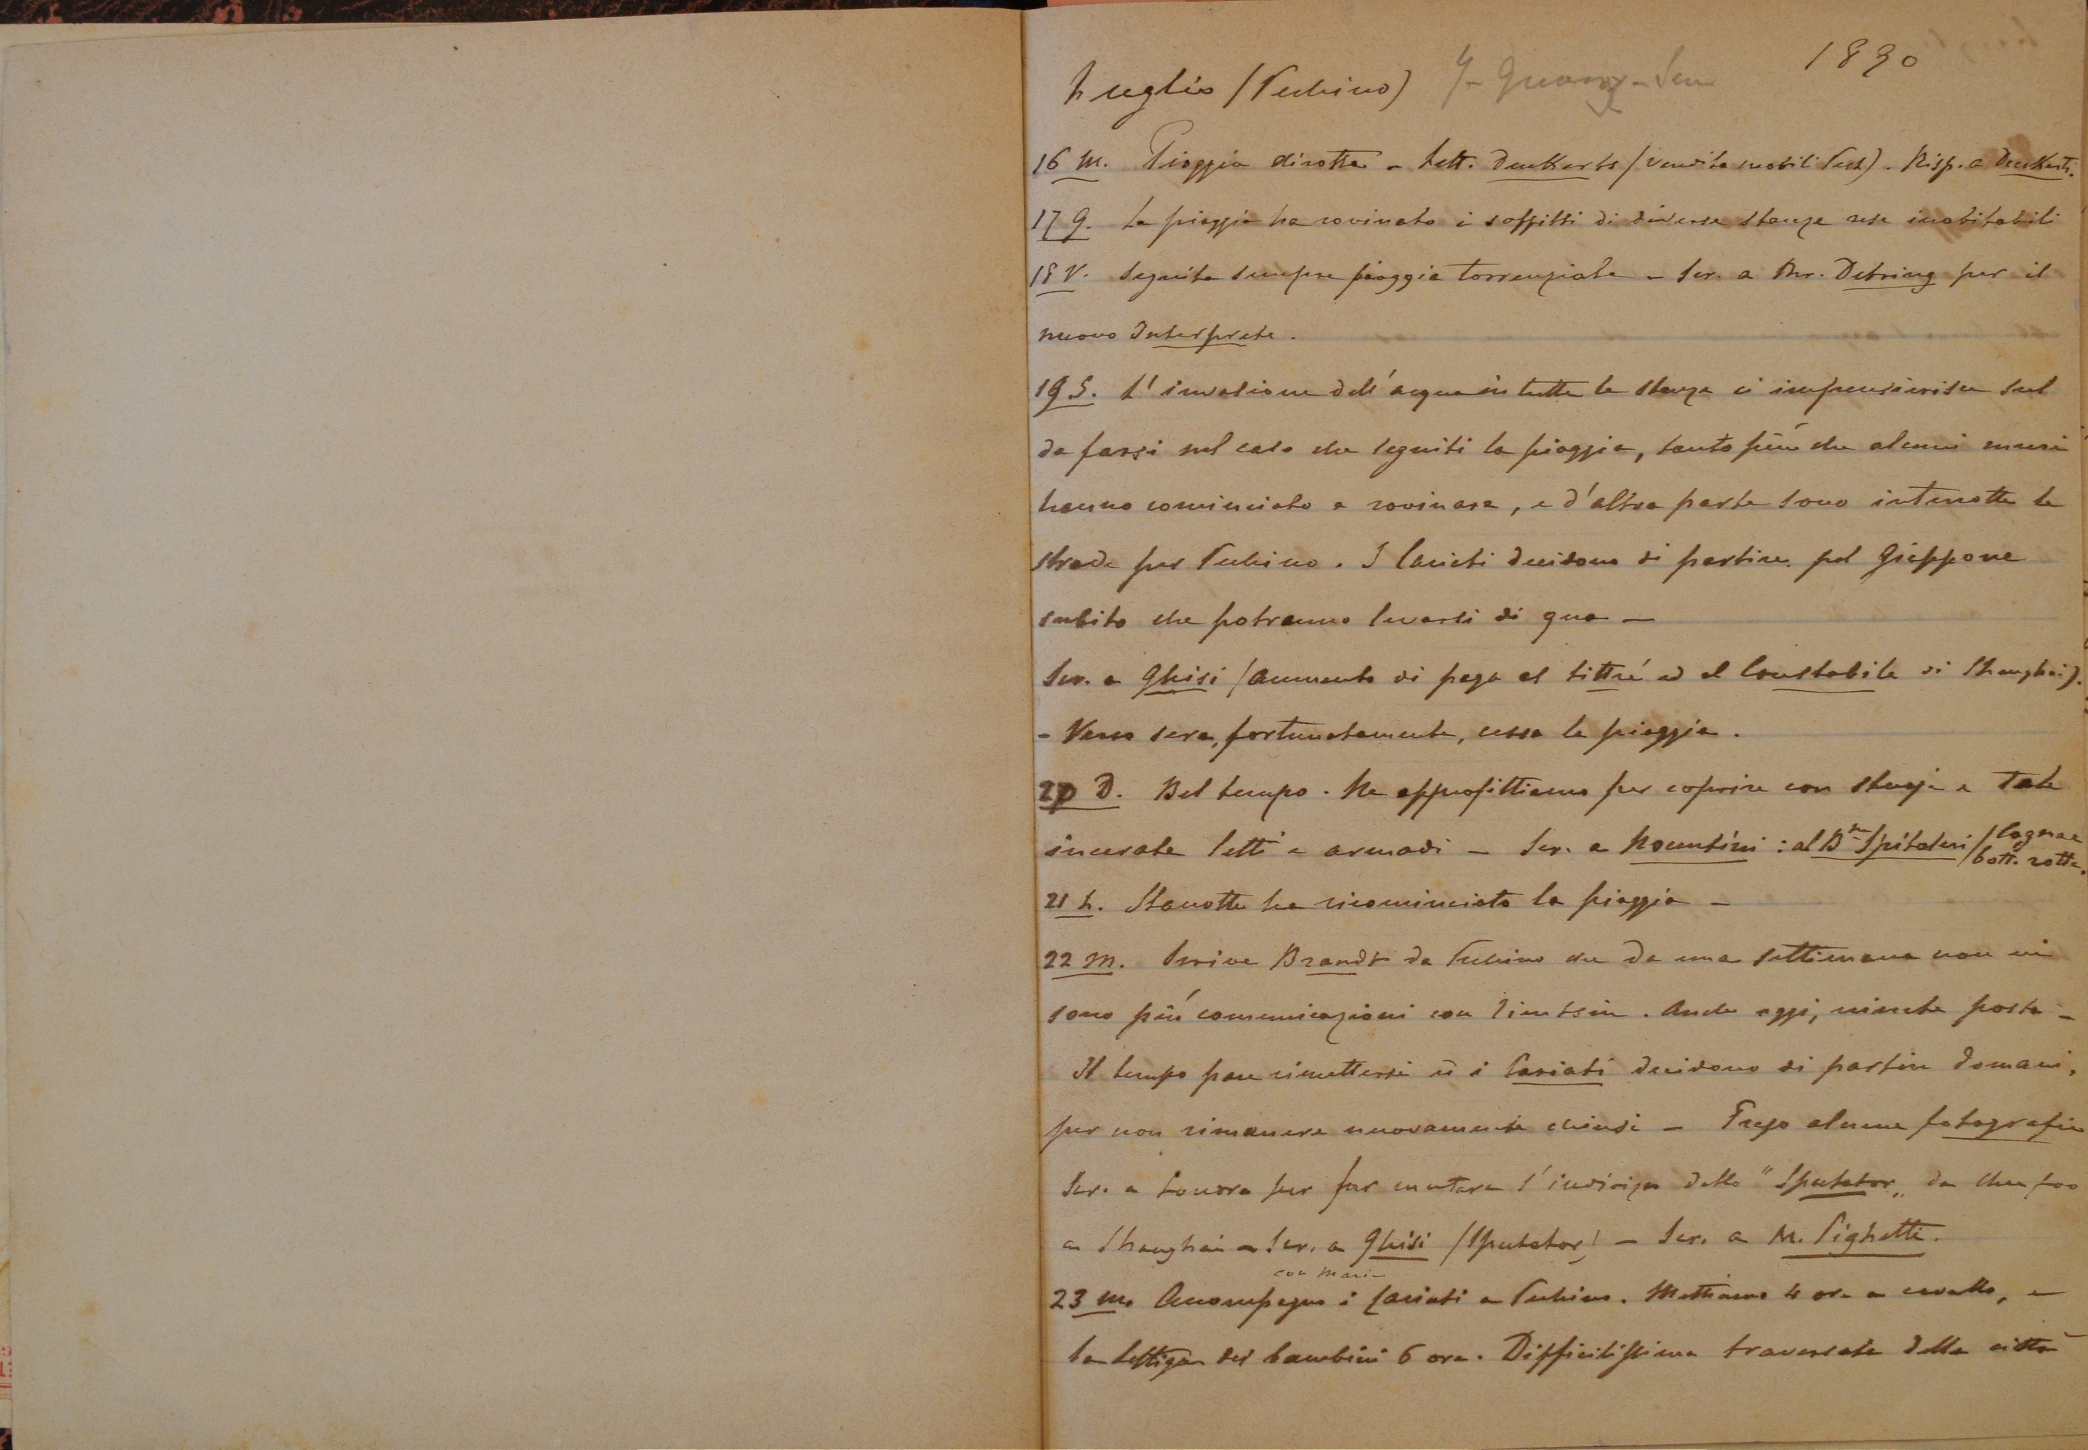 Luglio (Pechino) 1890
16 M. Pioggia dirotta - Lett. Denkarts (vendita mobili Pech). Risp. a Denkarts.
17 G. La pioggia ha rovinato i soffitti di diverse stanze rese inabitabili
18 V. Seguita sempre pioggia torrenziale - Scr. a Mr. Detring per il
nuovo Interprete.
19 S. L'invasione dell'acqua in tutte le stanze ci impensierisce sul
da farsi nel caso che seguiti la pioggia, tanto più che alcuni muri
hanno cominciato a rovinare, e d'altra parte sono interrotte le
strade per Pechino. I Cariati decidono di partire pel Giappone
subito che potranno levarsi di qua -
Scr. a Ghisi (aumento di paga al Littré ed al Constabile di Shanghai).
- Verso sera, fortunatamente, cessa la pioggia.
20 D. Bel tempo. Ne approfittiamo per coprire con stuoje e tele
incerate letti e armadi - Scr. a Nocentini : al Bne Spitaleri (Cognac
bott. rotte.
21 L. Stanotte ha ricominciato la pioggia -
22 M. Scrive Brandt da Pechino che da una settimana non vi
sono più comunicazioni con Tientsin. Anche oggi, niente posta -
Il tempo pare rimettersi e i Cariati decidono di partire domani,
per non rimanere nuovamente chiusi - Fas alcune fotografie
Scr. a Londra per far mutare l'indirizzo dello "Spectator" da Chefoo
a Shanghai - Scr. a Ghisi (Spectator) - Scr. a M. Pighetti.
con Maria
23 M. Accompagno i Cariati a Pechino. Mettiamo 4 ore a cavallo, e
la lettiga dei bambini 6 ore. Difficilissima traversata della città